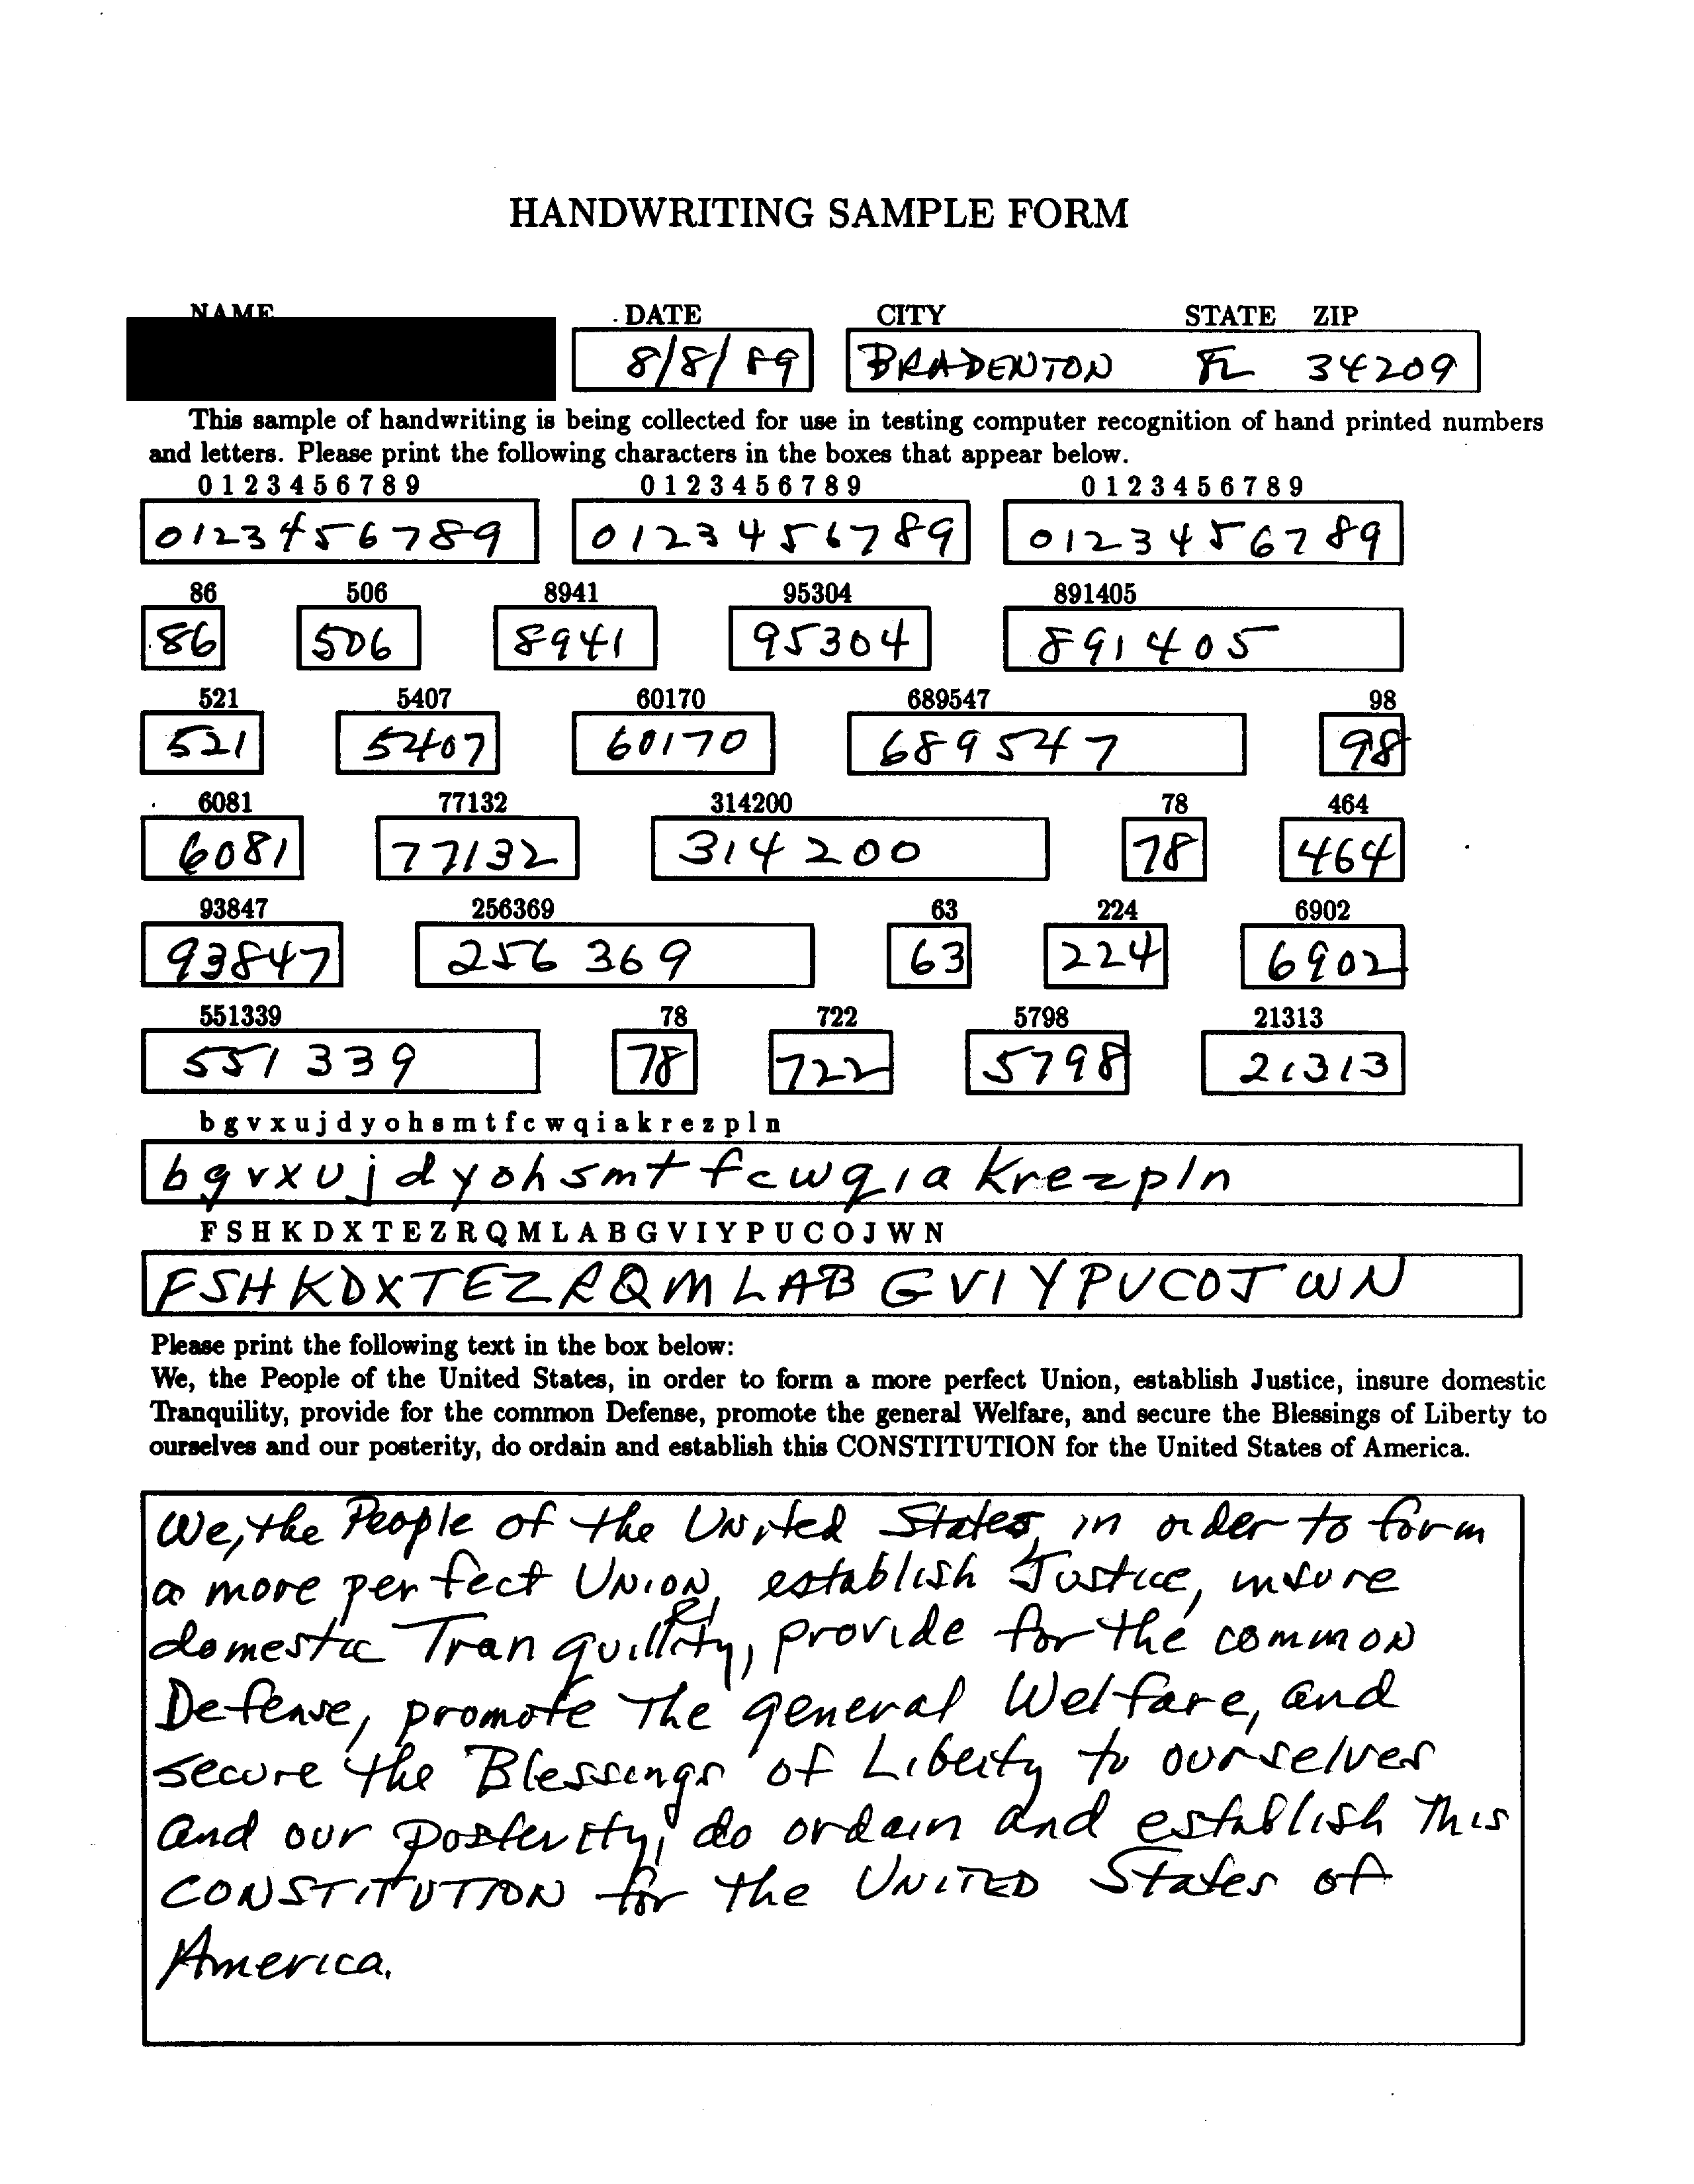 HANDWRITING SAMPLE FORM
NAME DATE CITY STATE ZIP
8/8/89 BRADENTON FL 34209
This sample of handwriting is being collected for use in testing computer recognition of hand printed numbers
and letters. Please print the following characters in the boxes that appear below.
0 1 2 3 4 5 6 7 8 9 0 1 2 3 4 5 6 7 8 9 0 1 2 3 4 5 6 7 8 9
0123456789 0123456789 0123456789
86 506 8941 95304 891405
86 506 8941 95304 891405
521 5407 60170 689547 98
521 5407 60170 689547 98
6081 77132 314200 78 464
6081 77132 314200 78 464
93847 256369 63 224 6902
93847 256369 63 224 6902
551339 78 722 5798 21313
551339 78 722 5798 21313
b g v x u j d y o h s m t f c w q i a k r e z p l n
b g v x u j d y o h s m t f c w q i a k r e z p l n
F S H K D X T E Z R Q M L A B G V I Y P U C O J W N
F S H K D X T E Z R Q M L A B G V I Y P U C O J W N
Please print the following text in the box below:
We, the People of the United States, in order to form a more perfect Union, establish Justice, insure domestic
Tranquility, provide for the common Defense, promote the general Welfare, and secure the Blessings of Liberty to
ourselves and our posterity, do ordain and establish this CONSTITUTION for the United States of America.
We, the People of the United States, in order to form
a more perfect UNION, establish Justice, insure
domestic Tranquility, provide for the common
Defense, promote The general Welfare, and
secure the Blessings of Liberty to ourselves
and our posterity, do ordain and establish This
CONSTITUTION for the UNITED States of
America.